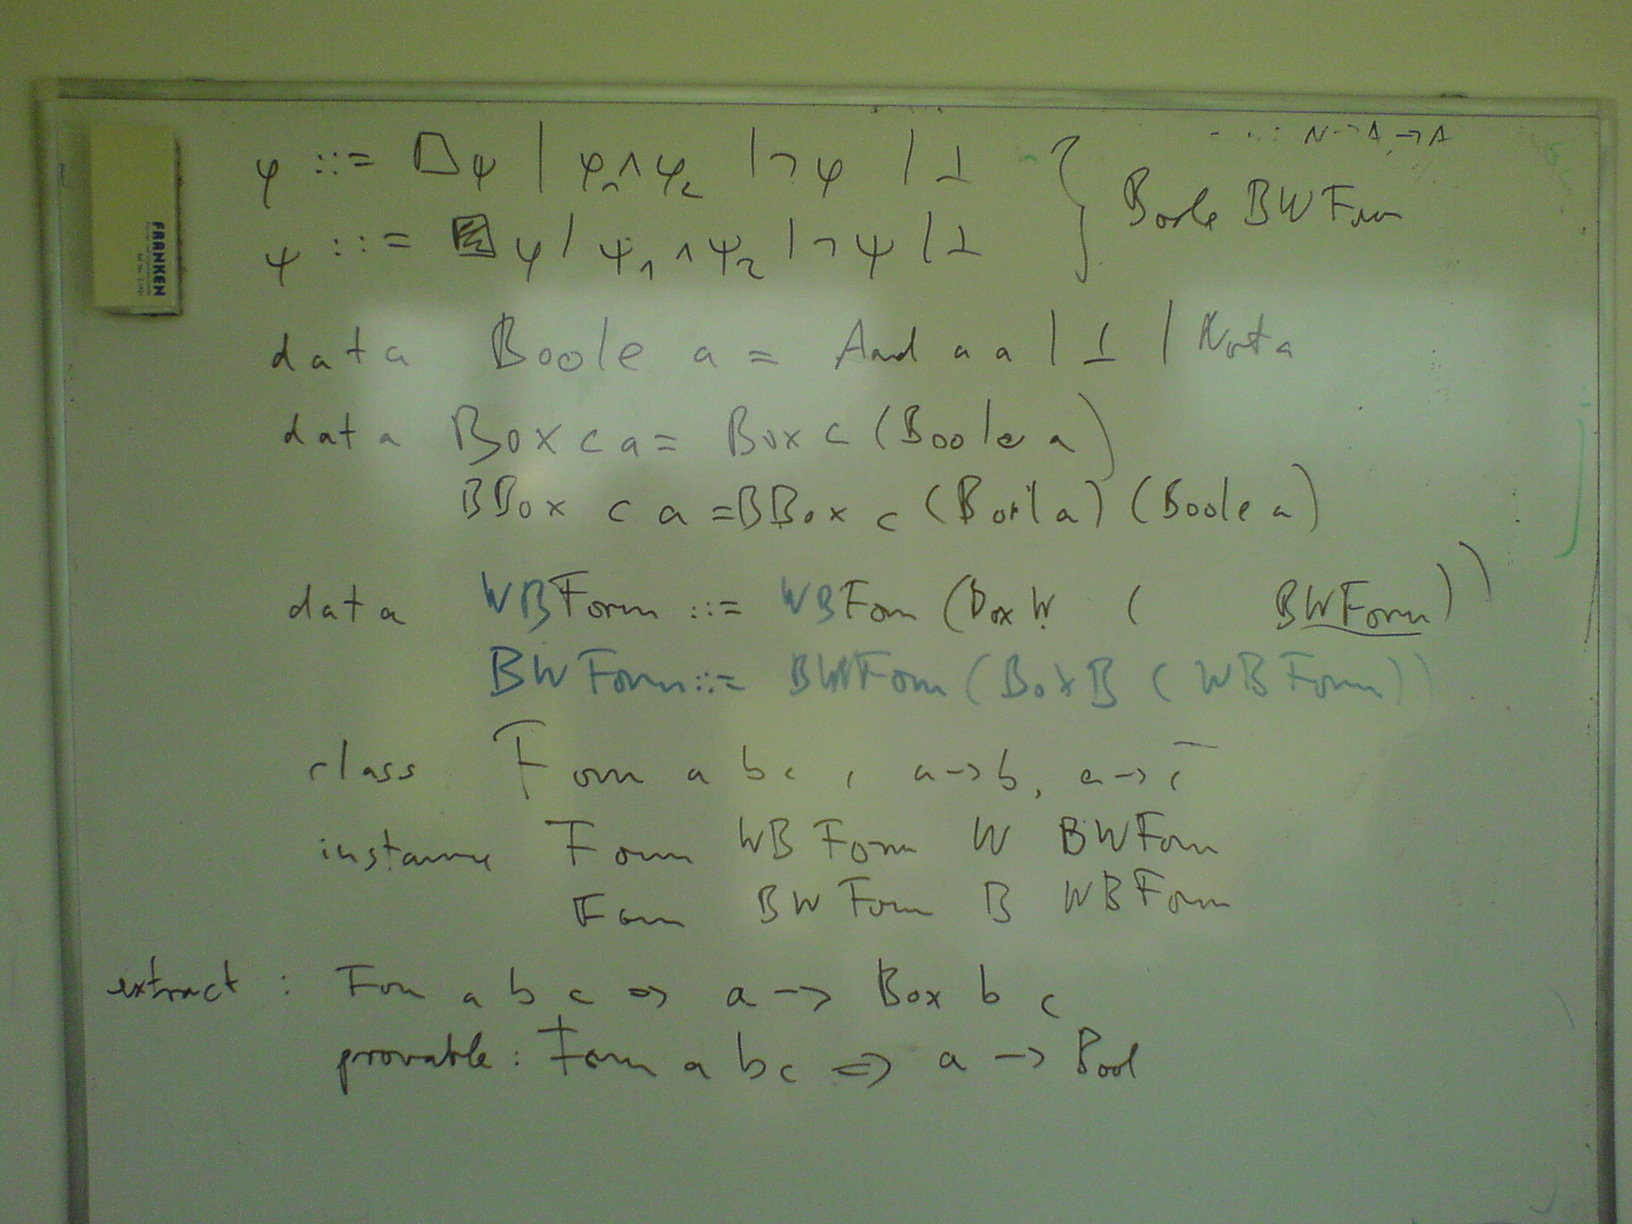 N → A → A
φ ::= □ψ | φ₁∧φ₂ | ¬φ | ⊥ } Boole BWForm
ψ ::= ■φ | ψ₁∧ψ₂ | ¬ψ | ⊥
FRANKEN
data Boole a = And a a | ⊥ | Not a
data Box c a = Box c (Boole a)
BBox c a = BBox c (Boole a) (Boole a)
data WBForm ::= WBForm (Box W ( BWForm))
BWForm ::= BWForm (Box B (WBForm))
class Form a b c , a → b, a → c
instance Form WBForm W BWForm
Form BWForm B WBForm
extract : Form a b c ⇒ a → Box b c
provable : Form a b c ⇒ a → Bool